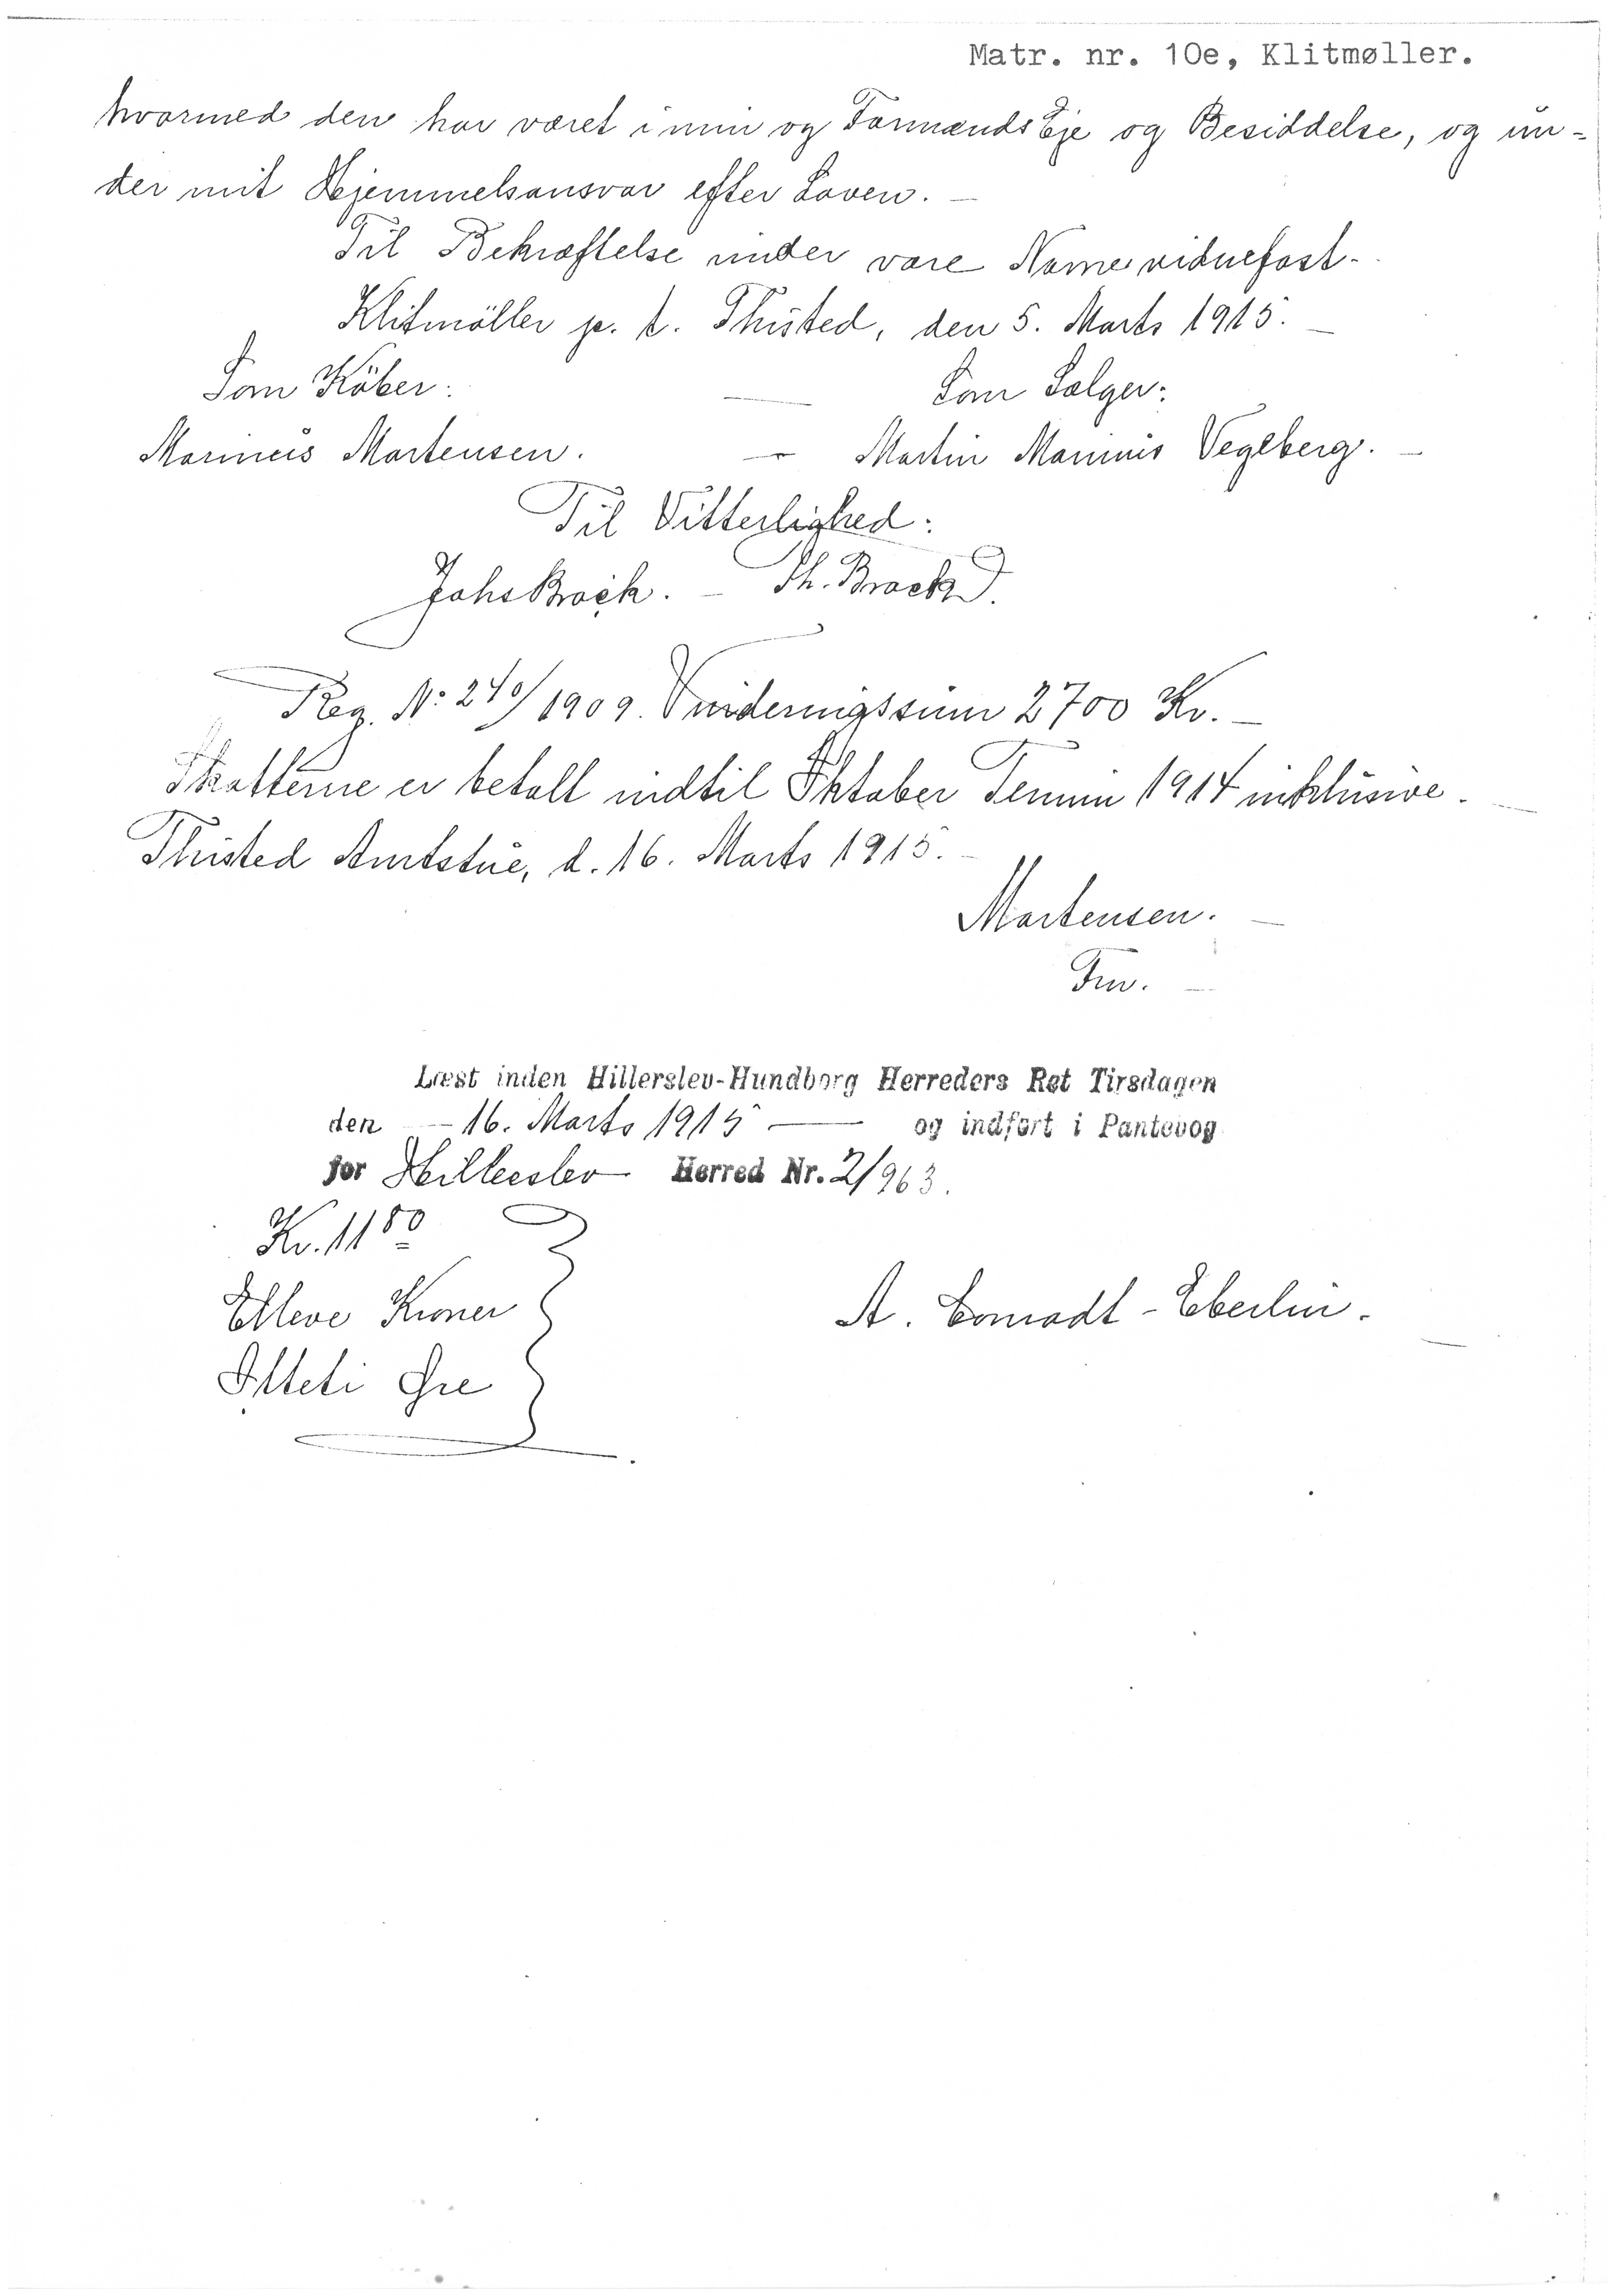 Matr. nr. 10e, Klitmøller.
hvormed den har været i min og Formænds Eje og Besiddelse, og un-
der mit Hjemmelsansvar efter Loven. —
Til Bekræftelse under vore Navne vidnefast.
Klitmöller p. t. Thisted, den 5. Marts 1915. —
Som Köber: — Som Sælger:
Marinus Martensen. — Martin Marinus Vegeberg. —
Til Vitterlighed:
Johs Brock. — Th. Brock.
Reg. No: 240/1909. Vurderingssum 2700 Kr. —
Skatterne er betalt indtil Oktober Termin 1914 inklusive. —
Thisted Amtstue, d. 16. Marts 1915. —
Martensen. —
Fm. —
Læst inden Hillerslev-Hundborg Herreders Ret Tirsdagen
den — 16. Marts 1915 — og indført i Pantebog
for Hillerslev Herred Nr. 2/963.
Kr. 11 80
Elleve Kroner
A. Conradt-Eberlin. —
Otteti Øre